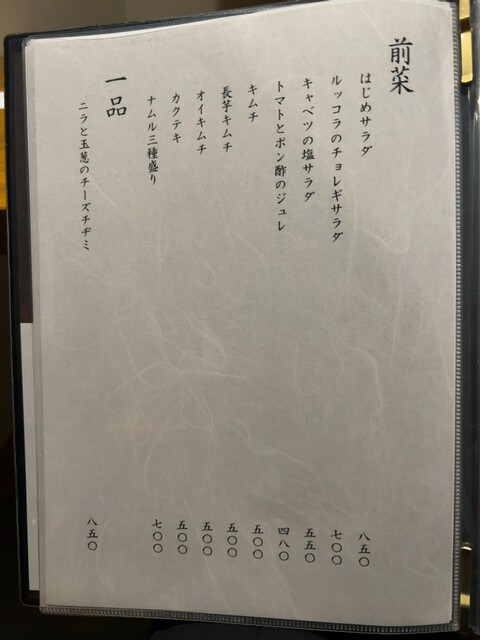 前菜
はじめサラダ 八五〇
ルッコラのチョレギサラダ 七〇〇
キャベツの塩サラダ 五五〇
トマトとポン酢のジュレ 四八〇
キムチ 五〇〇
長芋キムチ 五〇〇
オイキムチ 五〇〇
カクテキ 五〇〇
ナムル三種盛り 七〇〇
一品
ニラと玉葱のチーズチヂミ 八五〇